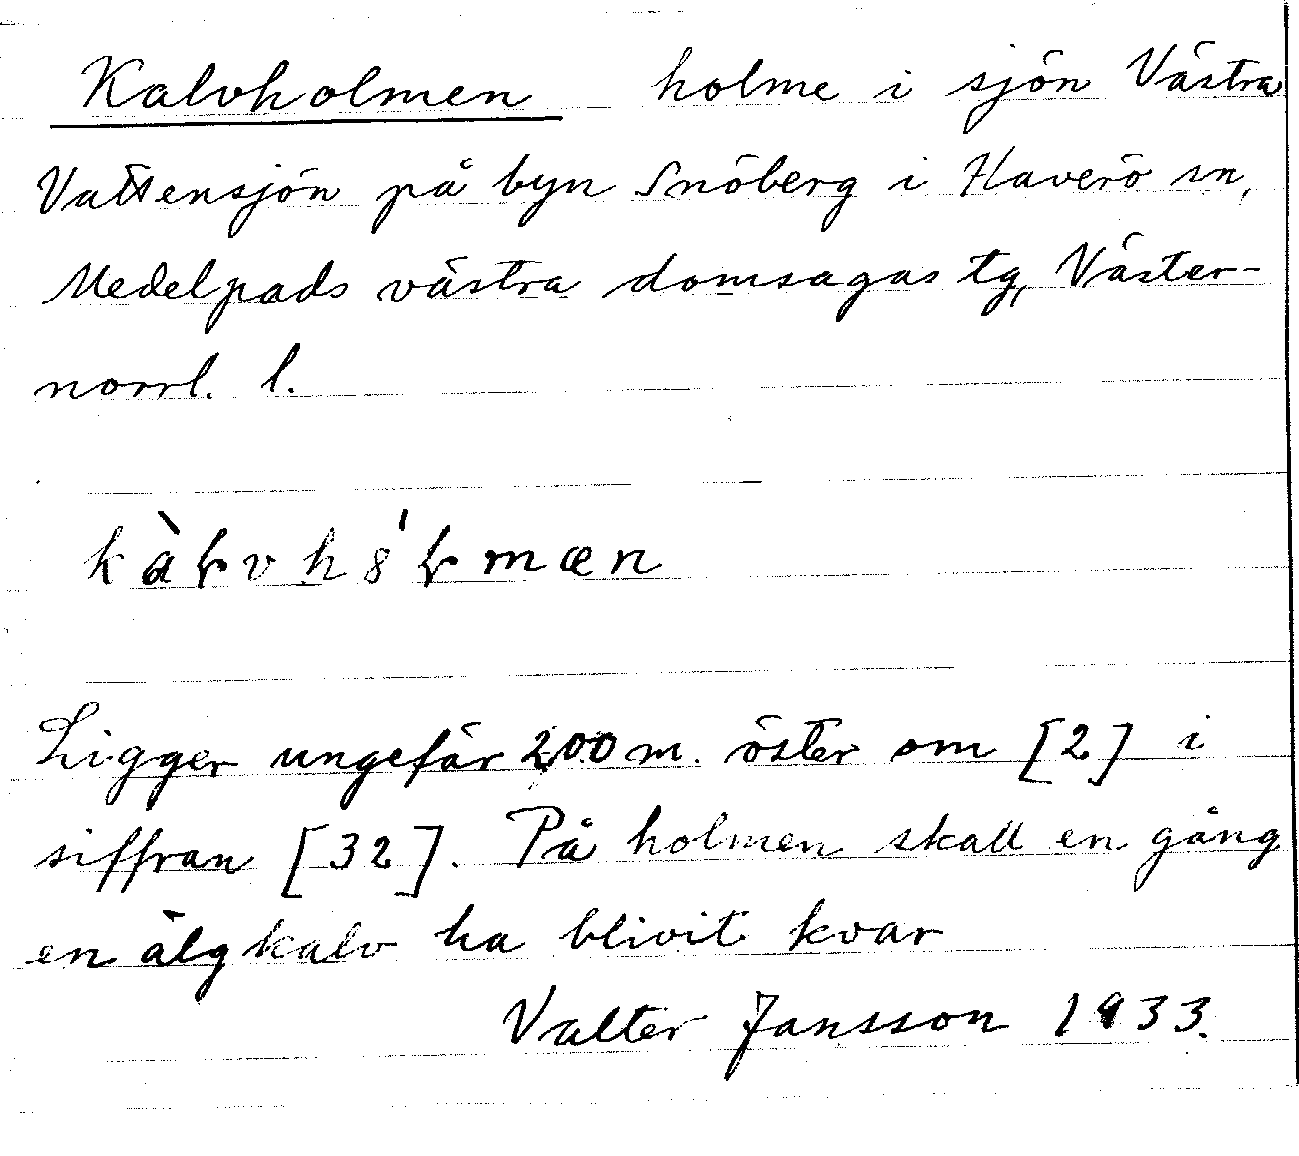 Kalvholmen holme i sjön Västra
Vattensjön på byn Snöberg i Haverö sn,
Medelpads västra domsagas tg, Väster-
norrl. l.
kàɽvhȣ́ɽmæn
Ligger ungefär 200 m. öster om [2] i
siffran [32]. På holmen skall en gång
en älgkalv ha blivit kvar
Valter Jansson 1933.